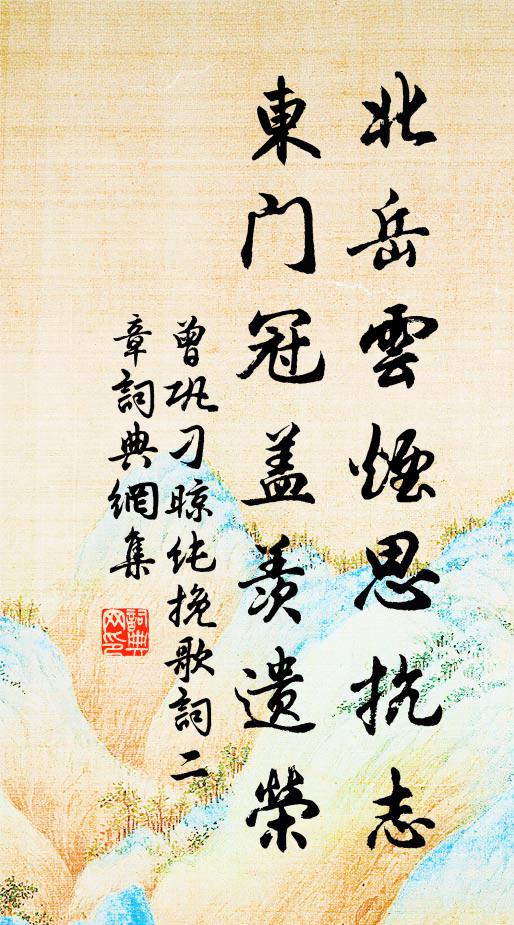 北岳雲煙思抗志
東門冠盖羨遺榮
曾巩刁暸纯挽歌詞二
章詞典網集
詞典